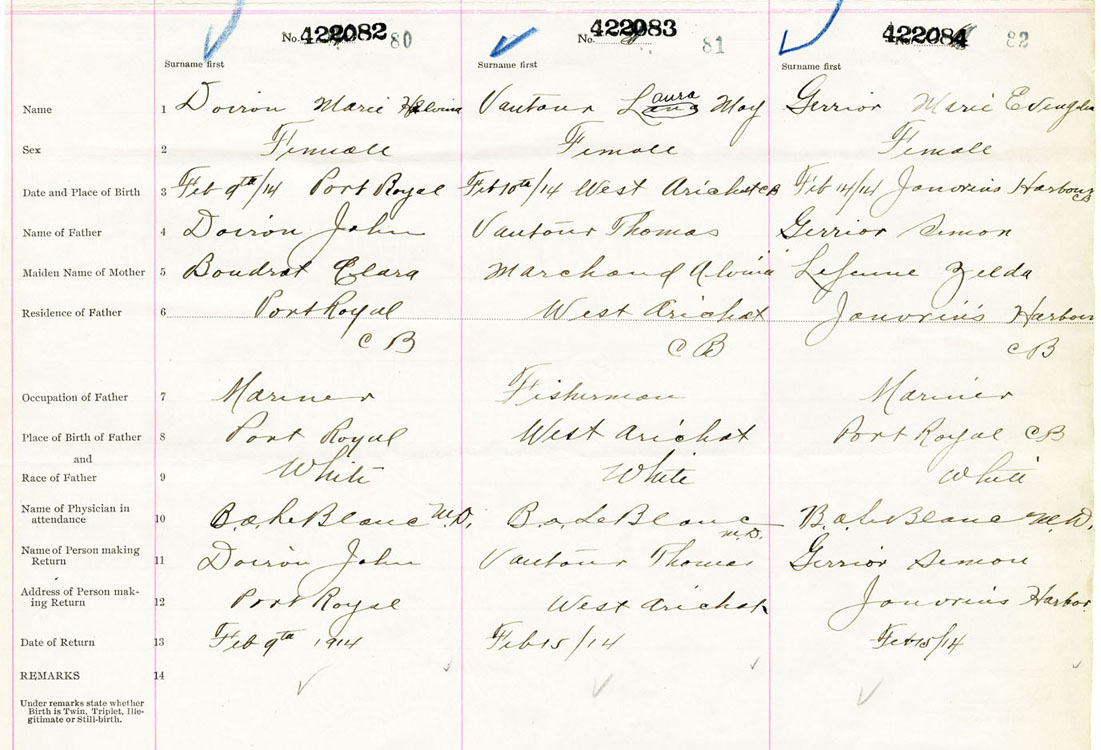 No. 422082 80 No. 422083 81 No. 422084 82
Surname first Surname first Surname first
Name 1 Doiron Marie Vautour Laura May Gerrior Marie Evengeline
Sex 2 Female Female Female
Date and Place of Birth 3 Feb 9th/14 Port Royal Feb 10th/14 West Arichat CB Feb 14/14 Janvrins Harbour CB
Name of Father 4 Doiron John Vautour Thomas Gerrior Simon
Maiden Name of Mother 5 Boudrot Clara Marchand Alvina LeJeune Zelda
Residence of Father 6 Port Royal West Arichat Janvrin's Harbour
C B C B C B
Occupation of Father 7 Mariner Fisherman Mariner
Place of Birth of Father 8 Port Royal West Arichat Port Royal CB
and
Race of Father 9 White White White
Name of Physician in
attendance 10 B.A. LeBlanc M.D. B.A. LeBlanc M.D. B.A. LeBlanc M.D.
Name of Person making
Return 11 Doiron John Vautour Thomas Gerrior Simon
Address of Person mak-
ing Return 12 Port Royal West Arichat Janvrins Harbor
Date of Return 13 Feb 9th 1914 Feb 15/14 Feb 15/14
REMARKS 14
Under remarks state whether
Birth is Twin, Triplet, Ille-
gitimate or Still-birth.